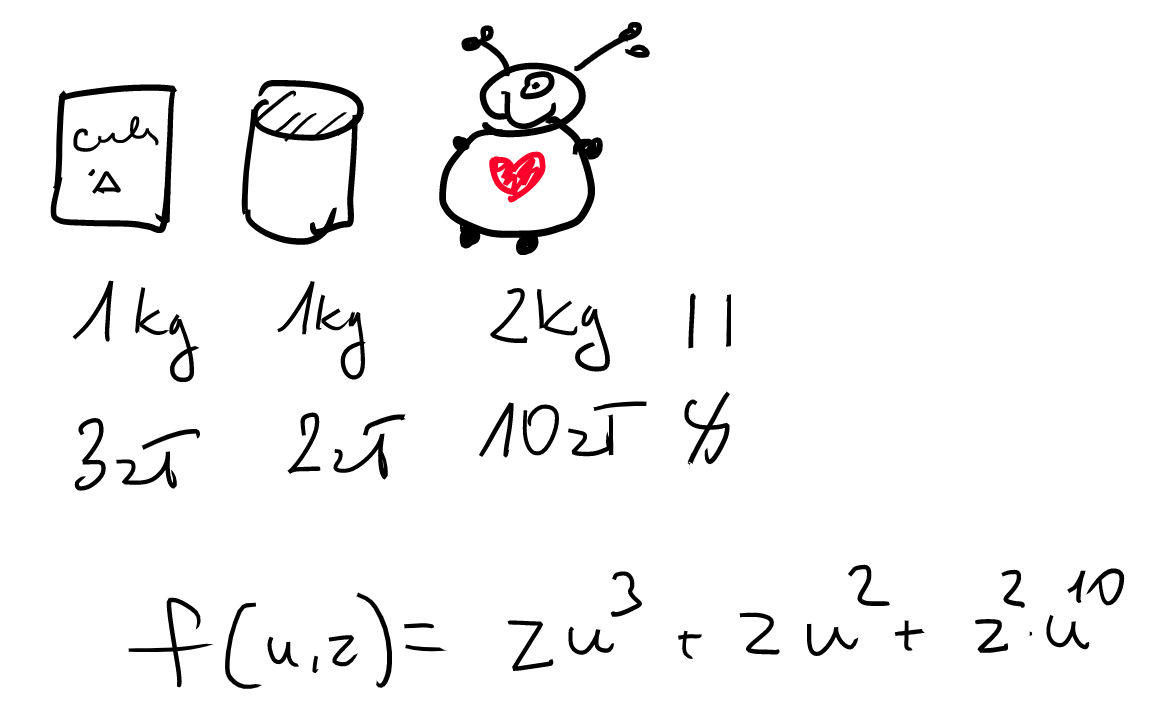 1kg 1kg 2kg ||
3zł 2zł 10zł $
f(u,z) = zu³ + zu² + z²·u¹⁰